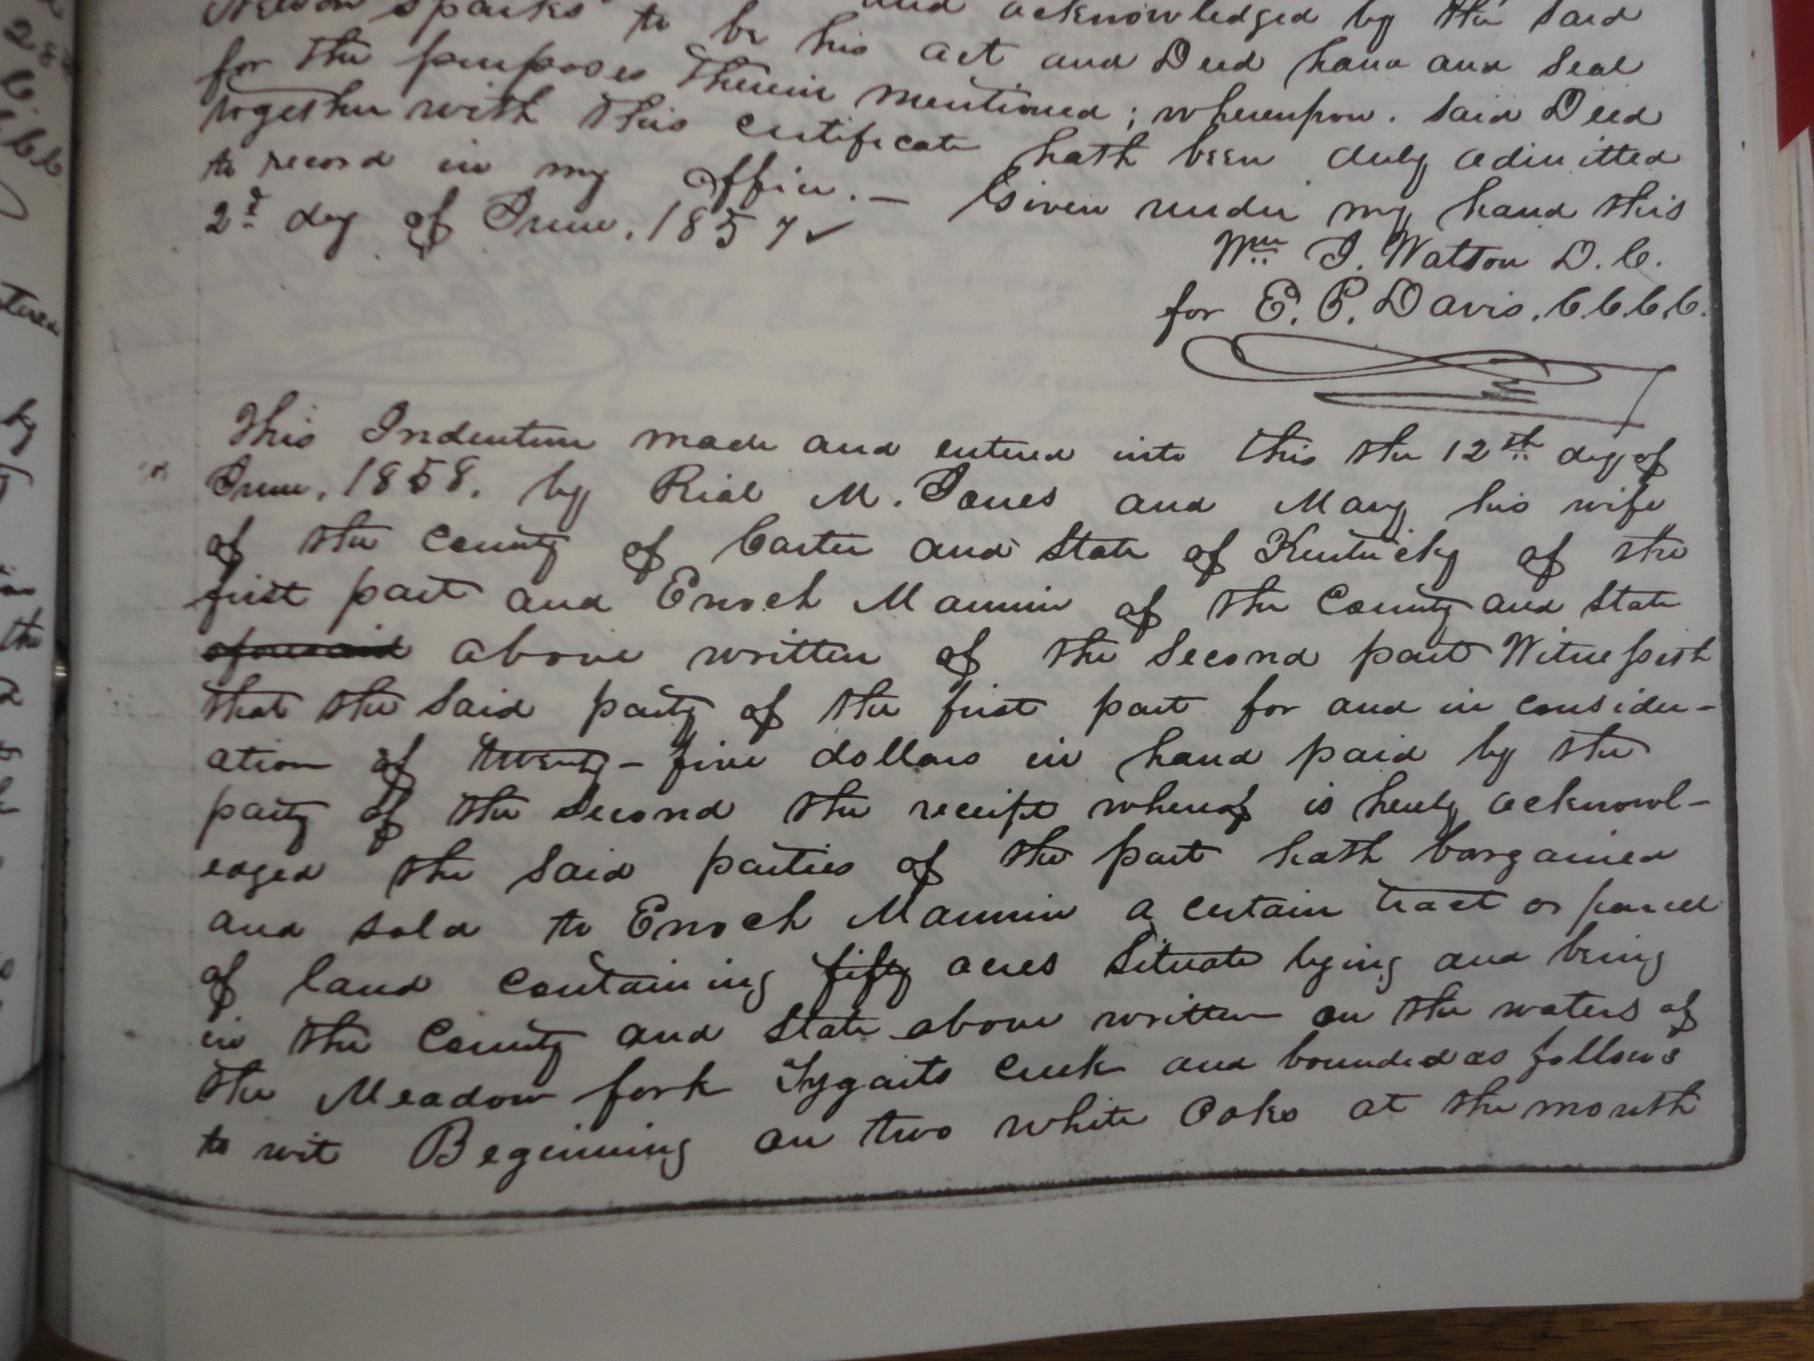 Nelson Sparks and acknowledged by the said
to be his act and Deed hand and Seal
for the purposes therein mentioned; whereupon. said Deed
together with this certificate hath been duly admitted
to record in my office. — Given under my hand this
2d day of June, 1857
Wm J. Watson D. C.
for E. P. Davis, C.C.C.C.
This Indenture made and entered into this the 12th day of
June, 1858. by Rial M. Jones and Mary his wife
of the County of Carter and State of Kentucky of the
first part and Enoch Mannin of the County and State
aforesaid above written of the Second part Witnesseth
that the said party of the first part for and in consider-
ation of twenty-five dollars in hand paid by the
party of the second the receipt whereof is hereby acknowl-
edged the said parties of the part hath bargained
and sold to Enoch Mannin a certain tract or parcel
of land containing fifty acres Situate lying and being
in the County and State above written on the waters of
the Meadow fork Tygarts Creek and bounded as follows
to wit Beginning on two white Oaks at the mouth